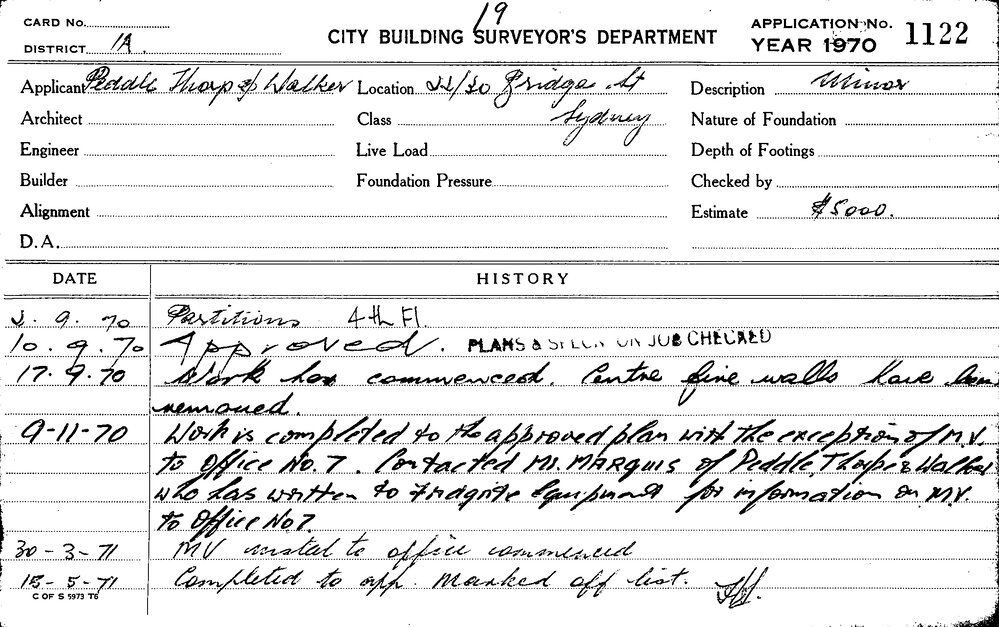 19
CARD No.
DISTRICT 1A.
CITY BUILDING SURVEYOR'S DEPARTMENT
APPLICATION No. 1122
YEAR 1970
Applicant Peddle Thorp & Walker Location /20 Bridge St Description Minor
Architect Class Sydney Nature of Foundation
Engineer Live Load Depth of Footings
Builder Foundation Pressure Checked by
Alignment Estimate $5000.
D.A.
DATE HISTORY
2. 9. 70 Partitions 4th Fl.
10. 9. 70 Approved. PLANS & SPECN ON JOB CHECKED
17. 9. 70 Work has commenced. Centre fire walls have been
removed.
9-11-70 Work is completed to the approved plan with the exception of M.V.
to Office No. 7. Contacted Mr. MARQUIS of Peddle, Thorpe & Walker
who has written to Equipment for information on M.V.
to Office No 7.
30-3-71 MV instal to office commenced
18-5-71 Completed to app. Marked off list.
C OF S 5973 T6